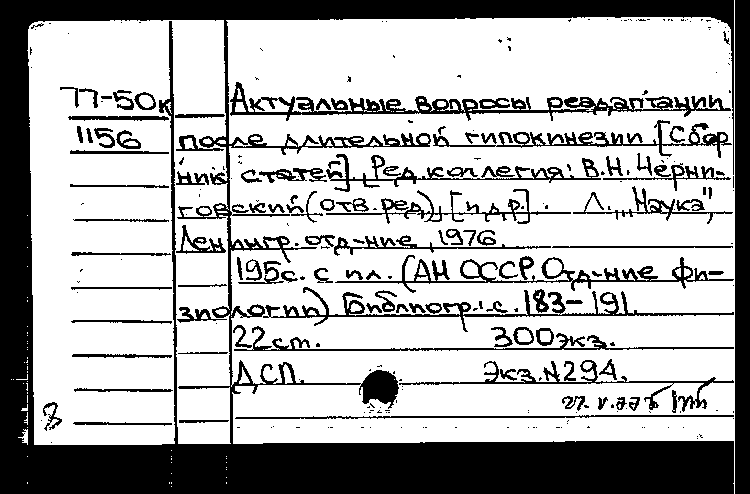 77-50к Актуальные вопросы реадаптации
1156 после длительной гипокинезии. [Сбор
ник статей]. [Ред. коллегия: В.Н. Черни-
говский (отв. ред), [и др.] . Л., "Наука",
Ленингр. отд-ние, 1976.
195с. с ил. (АН СССР. Отд-ние фи-
зиологии) Библиогр.: с. 183-191.
22 см. 300 экз.
ДСП. Экз. N294.
8